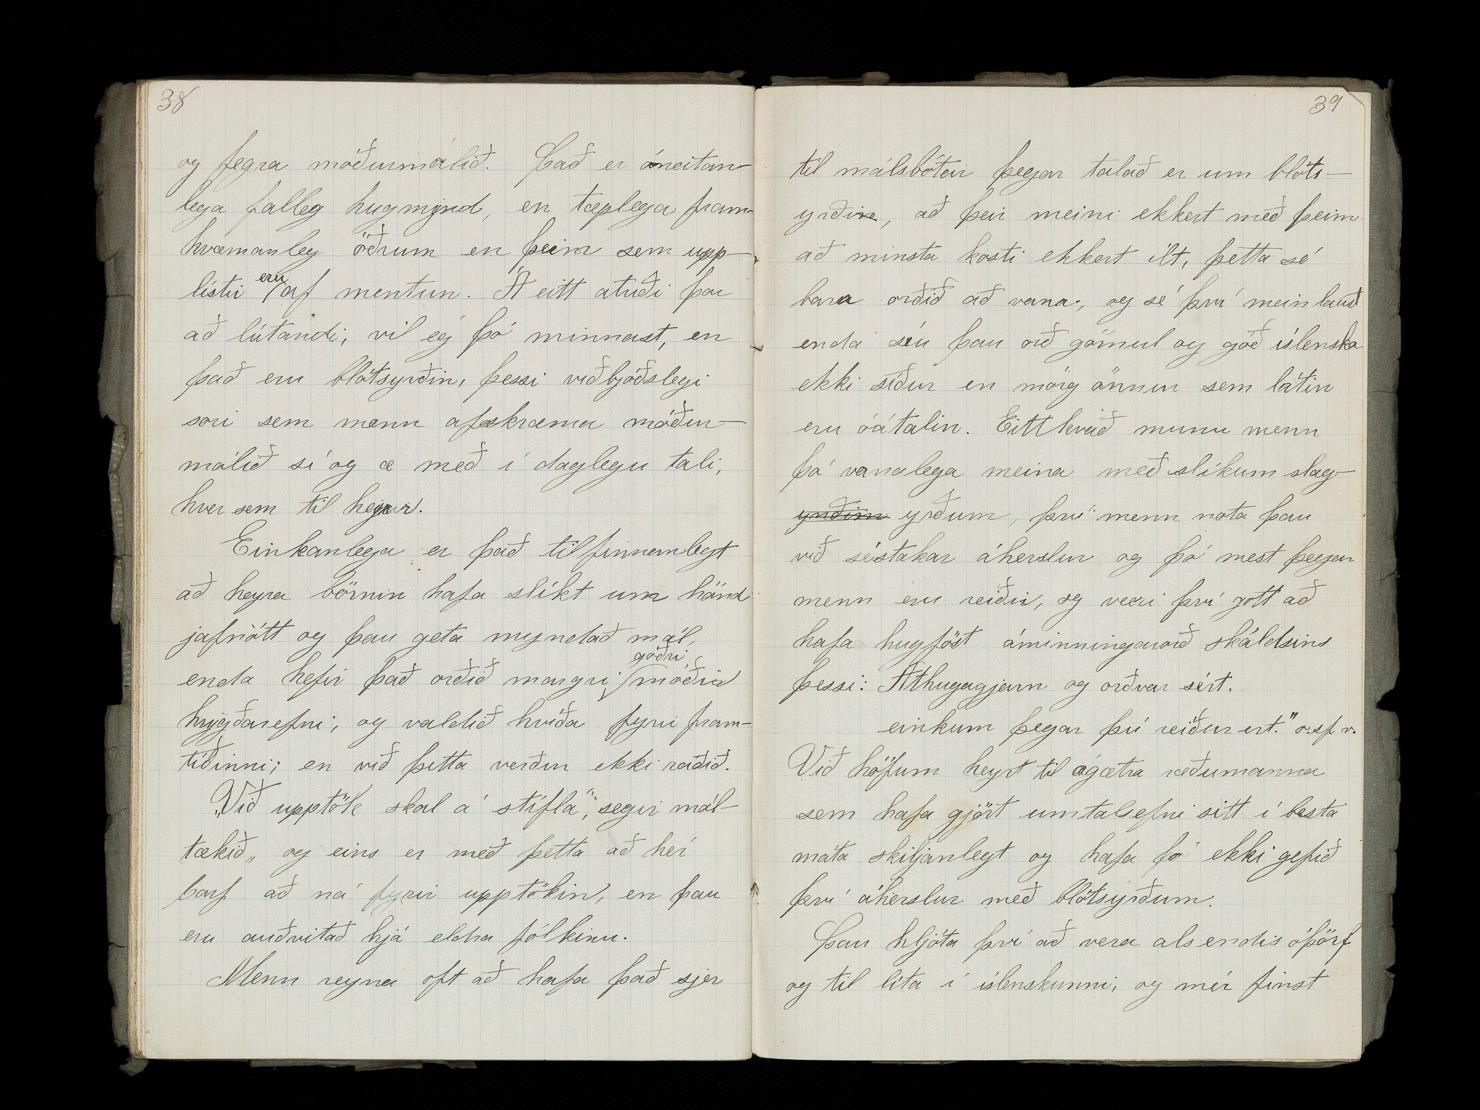 38
og fegra móðurmálið. Það er óneitan-
lega falleg hugmynd, en tæplega fram-
kvæmanleg öðrum en þeim sem upp-
lístir eru af mentun. Á eitt atriði þar
að lútandi, vil eg þó minnast, en
það eru blótsyrðin, þessi viðbjóðslegi
sori sem menn afskræma móður-
málið sí og æ með í daglegu tali,
hver sem til heyrir.
Einkanlega er það tilfinnanlegt
að heyra börnin hafa slíkt um hönd
jafnótt og þau geta myndað mál,
enda hefir það orðið margri góðri móðir
hrygðarefni, og valdið kvíða fyrir fram-
tíðinni; en við þetta verður ekki ráðið.
„Við upptök skal á stífla", segir mál-
tækið„ og eins er með þetta að hér
þarf að ná fyrir upptökin, en þau
eru auðvitað hjá eldra fólkinu.
Menn reyna oft að hafa það sjer
39
til málsbótar þegar talað er um blóts-
yrðin, að þeir meini ekkert með þeim
að minsta kosti ekkert ilt, þetta sé
bara orðið að vana, og sé því meinlaust
enda séu þau orð gömul og góð íslenska
ekki síður en mörg önnur sem látin
eru óátalin. Eitthvað munu menn
þó vanalega meina með slíkum slag-
yrðin yrðum, því menn nota þau
við sérstakar áherslur og þó mest þegar
menn eru reiðir, og væri því gott að
hafa hugföst áminningarorð skáldsins
þessi: Athugagjarn og orðvar sért.
einkum þegar þú reiður ert." o.s.f.v.
Við höfum heyrt til ágætra ræðumanna
sem hafa gjört umtalsefni sitt í besta
máta skiljanlegt og hafa þó ekki gefið
því áherslur með blótsyrðum.
Þau hljóta því að vera alsendis óþörf
og til líta í íslenskunni, og mér finst